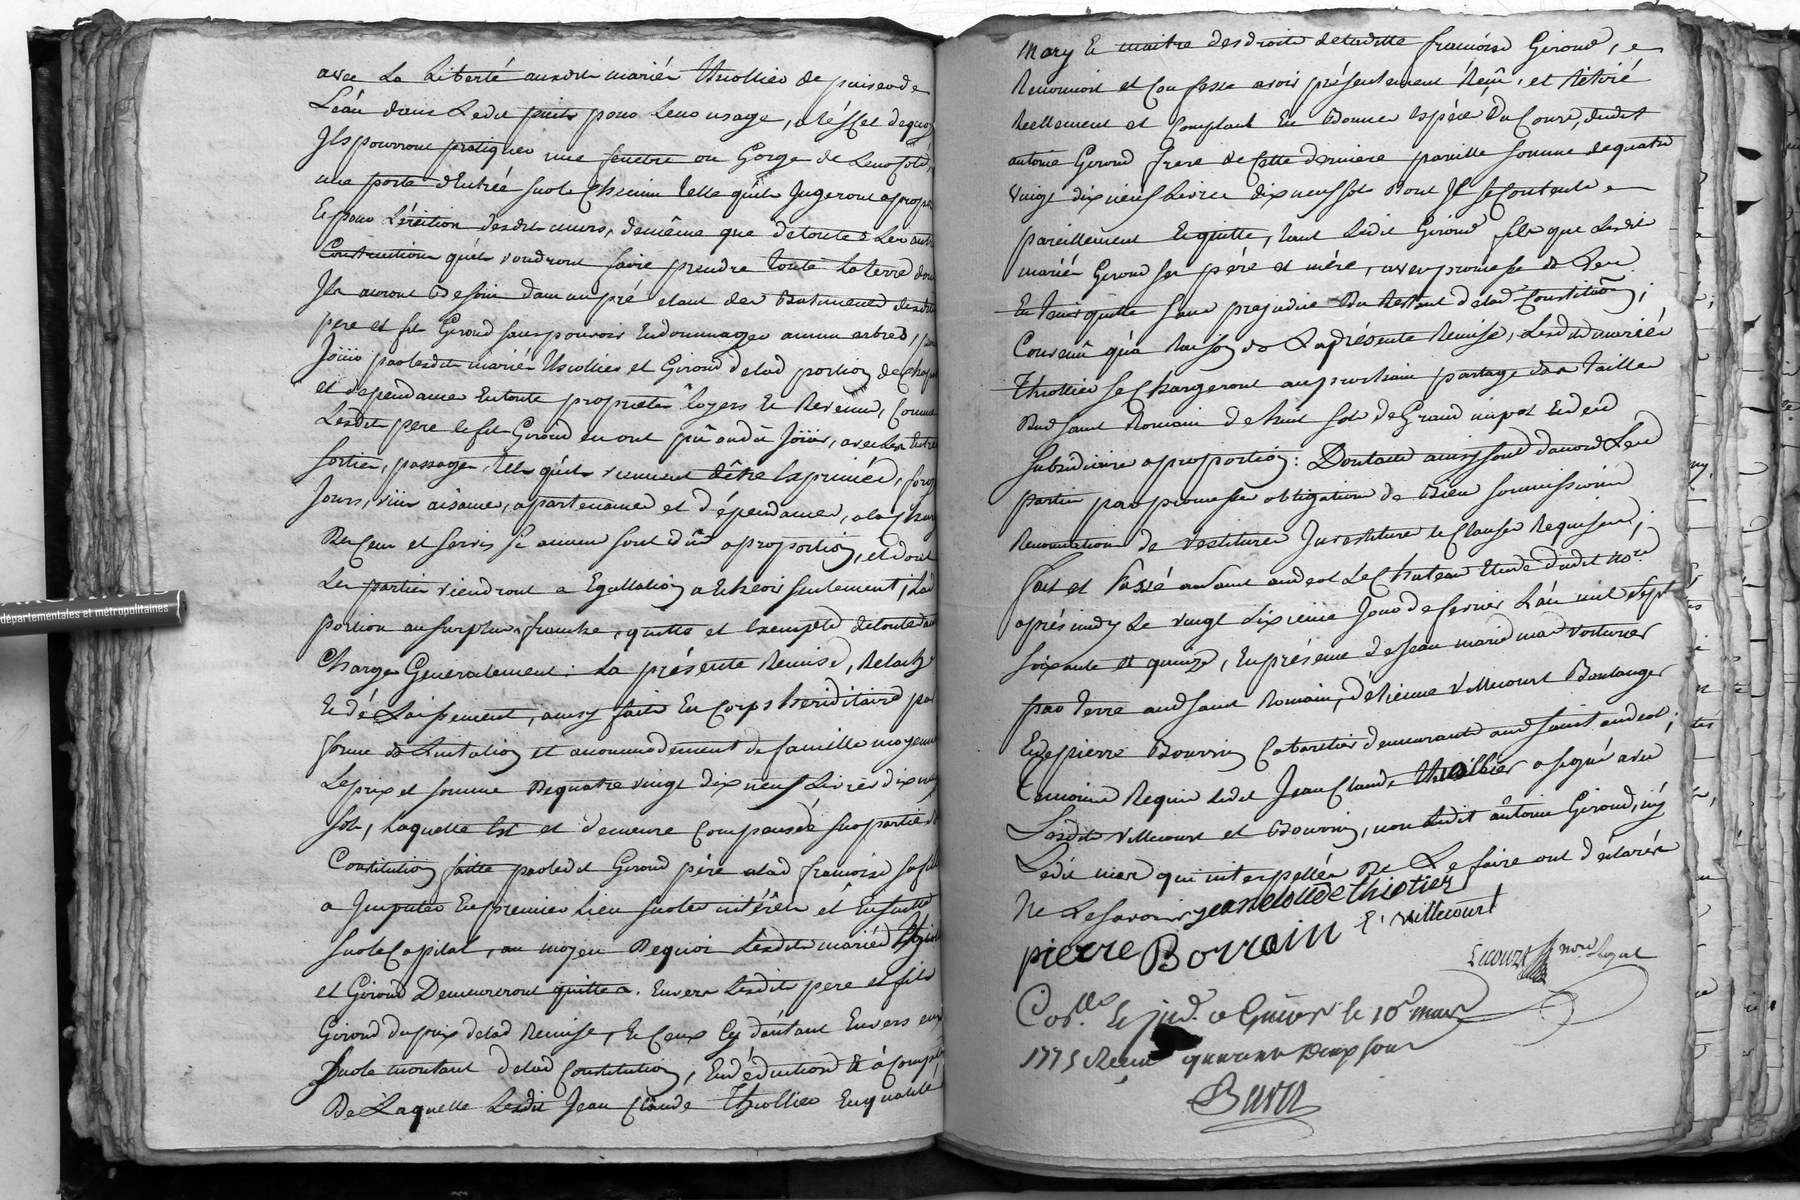 avec La Liberté auxdits mariés Thiollier de puiser de
L'eau dans Ledit puits pour Leur usage, a l'éffet dequoy
Ils pourront pratiquer une fenêtre ou Gorge de Leur Coté,
une porte d'Entrée sur le Chemin telle qu'ils Jugeront apropos
Et pour L'éréction desdits murs, demême que detoutes Les autres
Construction qu'ils voudront faire prendre toute La terre dont
Ils auront Besoin dans un pré etant des Batiments desdits
pere et fils Giroud sans pouvoir Endommager aucuns arbres, pour
Joüir par lesdits mariés Thiollier et Giroud delad portion de
et dépendance Entoute proprieté loyers Et Revenu, Comme
Lesdits pere et fils Giroud en ont pû ou dû Joüir, avec Les Entrées
sorties, passages, tels qu'ils viennent d'être Exprimés,
Jours, vües aisance, apartenance et dépendance, a la charge
Du Cens et servis si aucun sont dûs aproportion, et dont
Les parties viendront a Egallation a Echeoir seulement; Lad
portion au surplus franche, quitte et Exempte detoutes autres
Charges Generalement: La présente Remise, Relache
Et dé Laissement, ainsy faite En Corps héréditaire par
forme de Licitation et accommodement de famille moyennant
Le prix et somme De quatre vingt dix neuf Livres dix neuf
sols, Laquelle Est et demeure Compensée sur partie de
Constitution faitte par ledit Giroud père alad françoise sa fille
a Imputer En premier Lieu sur les intérêts et Ensuitte
sur le Capital, au moyen De quoi Lesdits mariés Thiollier
et Giroud Demeureront quittes Envers Lesdits pere et fils
Giroud du prix delad Remise, Et Ceux Cy d'autant Envers eux
sur le montant delad Constitution, En déduction & à Compte
De Laquelle Ledit Jean Claude Thiollier En qualité
Mary Et maitre des droits deladitte françoise Giroud,
Reconnoit et Confesse avoir présentement Reçû, et Retiré
Reellement et Comptant En Bonnes Espéce Du Cours, dudit
antoine Giroud frere de Cette derniere pareille somme de quatre
vingt dix neuf Livres dix neuf sols Dont Il se Contente
pareillement En quitte, tant Ledit Giroud fils que Lesdits
mariés Giroud ses père et mère, avec promesse de Les
En tenir quitte sans prejudice Du Restant delad Constitution;
Convenû qu'a Raison de La présente Remise, Lesdits mariés
Thiollier se Chargeront au prochain partage de la Taille
Dud saint Romain de huit sols de Grand impot Et des
subsidiaires aproportion: Dont acte ainsy sont d'accord Les
parties par promesses obligations de Biens soumissions
Renonciation de vestitures Investiture et Clauses Requises;
fait et Passé au saint andeol Le Chateau Etude dudit nore
après midy Le vingt sixieme Jour de fevrier L'an mil sept
soixante et quinze, En présence de Jean marie mar Voiturier
par terre aud saint Romain, d'etienne Villecourt Boulanger
Et de pierre Bourrin Cabaretier demeurants aud saint andeol;
temoins Requis Ledit Jean Claude Thiollier a signé avec
Lesdits Villecourt et Bourrin, non Ledit antoine Giroud, ny
Ledit mar qui interpellés De Le faire ont déclarés
Ne Le savoir jeanclaude thiotier
pierre Borrain E. villecourt
Lecourt nore Royal
Collé Et à Givors le 10e mars
1775 Reçu quarante Deux sous